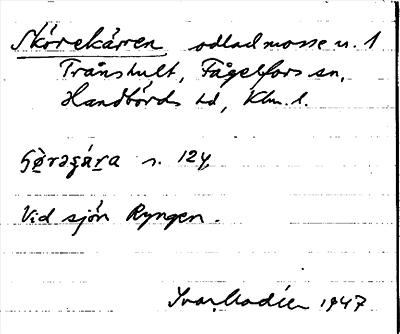 Skörekärren odlad mosse n. 1
Trånshult, Fågelfors sn,
Handbörds hd, Klm. l.
s. 124
Vid sjön Ryngen.
Ivar Modéer 1947